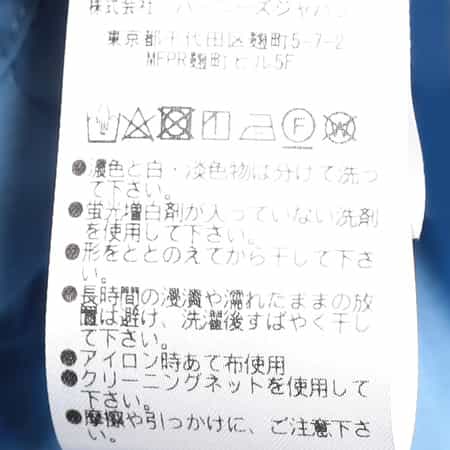 株式会社 バーニーズジャパン
東京都千代田区麹町5-7-2
MFPR麹町ビル5F
F
W
●濃色と白・淡色物は分けて洗っ
て下さい。
●蛍光増白剤が入っていない洗剤
を使用して下さい。
●形をととのえてから干して下さ
い。
●長時間の浸漬や濡れたままの放
置は避け、洗濯後すばやく干し
て下さい。
●アイロン時あて布使用
●クリーニングネットを使用して
下さい。
●摩擦や引っかけに、ご注意下さ
い。